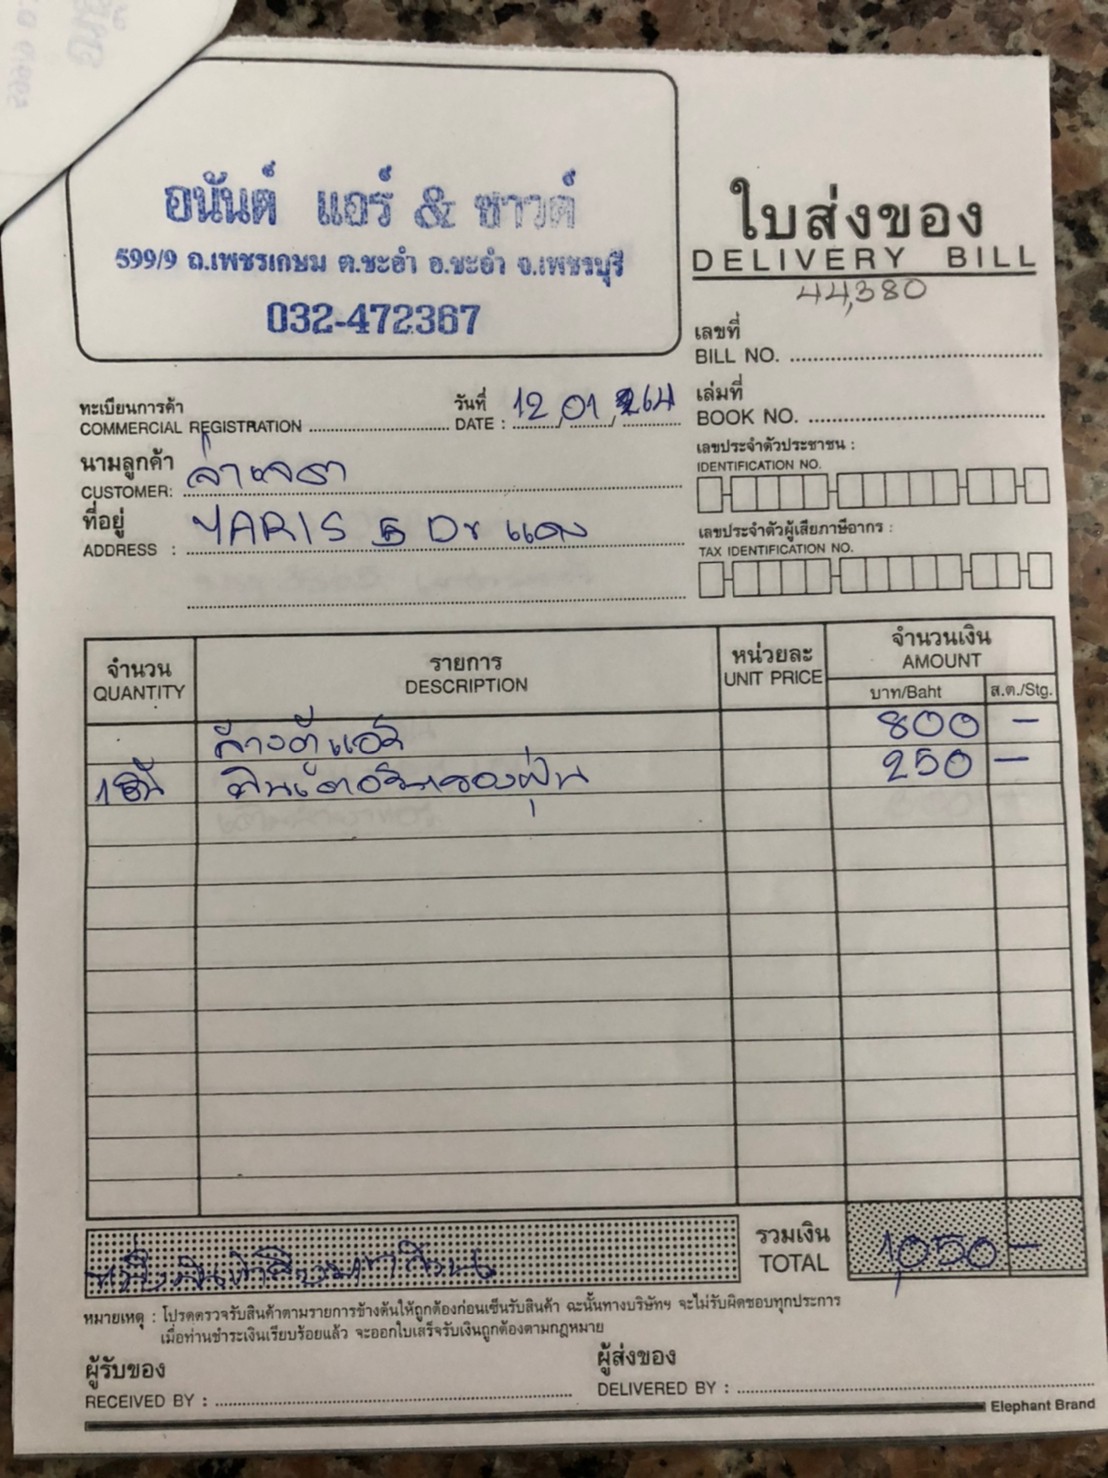 อนันต์ แอร์ & ซาวด์
599/9 ถ.เพชรเกษม ต.ชะอำ อ.ชะอำ จ.เพชรบุรี
032-472367
ใบส่งของ
DELIVERY BILL
44,380
เลขที่
BILL NO.
ทะเบียนการค้า
COMMERCIAL REGISTRATION
วันที่
DATE : 12/01/64
เล่มที่
BOOK NO.
นามลูกค้า
CUSTOMER:
ที่อยู่
ADDRESS : YARIS 5 Dr แดง
เลขประจำตัวประชาชน :
IDENTIFICATION NO.
เลขประจำตัวผู้เสียภาษีอากร :
TAX IDENTIFICATION NO.
จำนวน
QUANTITY
รายการ
DESCRIPTION
หน่วยละ
UNIT PRICE
จำนวนเงิน
AMOUNT
บาท/Baht ส.ต./Stg.
ล้างตู้แอร์ 800 -
1 ฟินเตอร์กรองฝุ่น 250 -
หนึ่งพันห้าสิบบาทถ้วน
รวมเงิน
TOTAL 1,050 -
หมายเหตุ : โปรดตรวจรับสินค้าตามรายการข้างต้นให้ถูกต้องก่อนเซ็นรับสินค้า ฉะนั้นทางบริษัทฯ จะไม่รับผิดชอบทุกประการ
เมื่อท่านชำระเงินเรียบร้อยแล้ว จะออกใบเสร็จรับเงินถูกต้องตามกฎหมาย
ผู้รับของ
RECEIVED BY :
ผู้ส่งของ
DELIVERED BY :
Elephant Brand